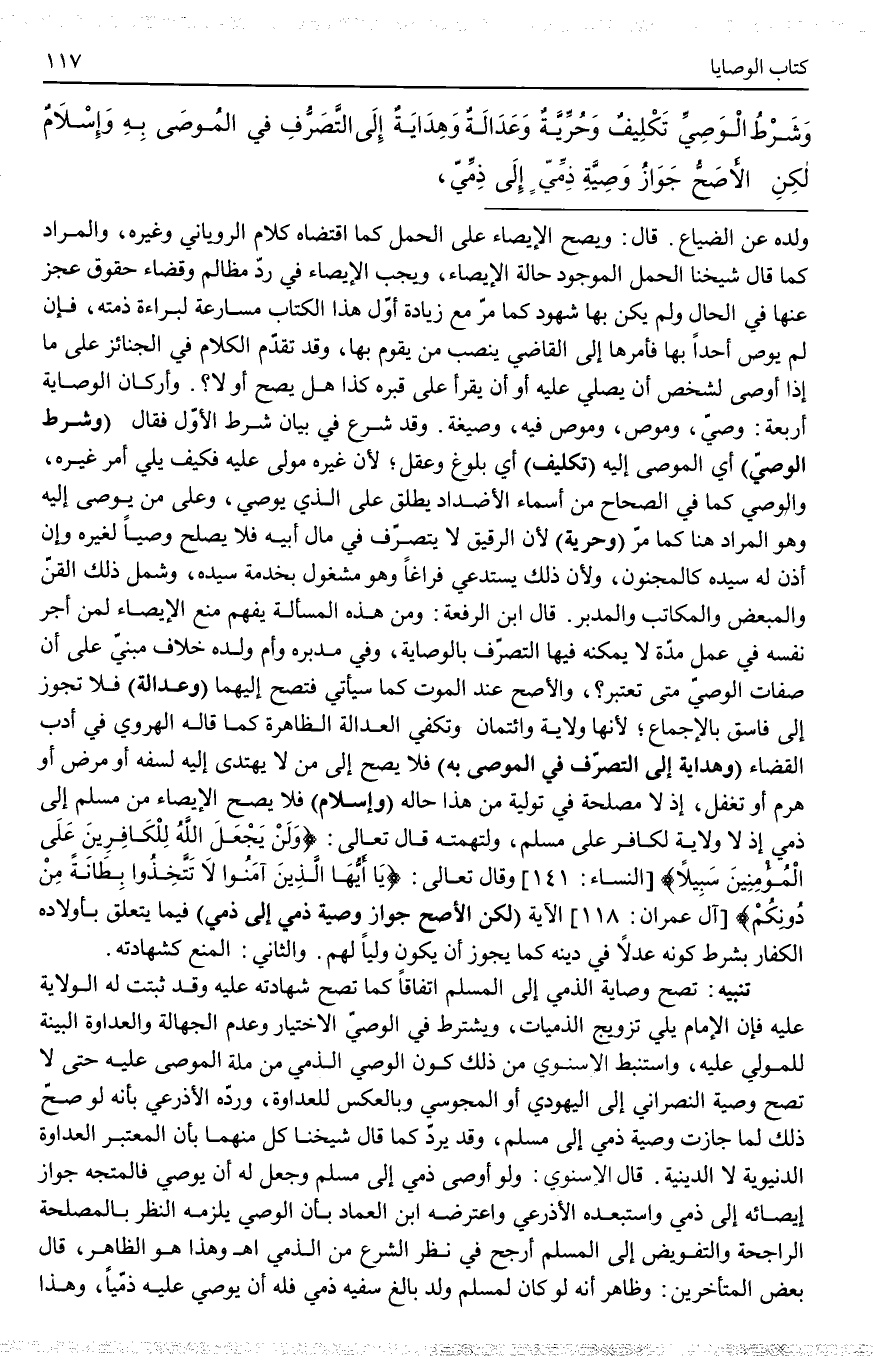 كتاب الوصايا ١١٧
وَشَرْطُ الْوَصِيِّ تَكْلِيفٌ وَحُرِّيَّةٌ وَعَدَالَةٌ وَهِدَايَةٌ إِلَى التَّصَرُّفِ في المُوصَى بِهِ وَإِسْلَامٌ
لٰكِنِ الأَصَحُّ جَوَازُ وَصِيَّةِ ذِمِّيّ إِلَى ذِمِّيّ،
ولده عن الضياع. قال: ويصح الإيصاء على الحمل كما اقتضاه كلام الروياني وغيره، والمراد
كما قال شيخنا الحمل الموجود حالة الإيصاء، ويجب الإيصاء في ردّ مظالم وقضاء حقوق عجز
عنها في الحال ولم يكن بها شهود كما مرّ مع زيادة أوّل هذا الكتاب مسارعة لبراءة ذمته، فإن
لم يوص أحداً بها فأمرها إلى القاضي ينصب من يقوم بها، وقد تقدّم الكلام في الجنائز على ما
إذا أوصى لشخص أن يصلي عليه أو أن يقرأ على قبره كذا هل يصح أو لا؟. وأركان الوصاية
أربعة: وصيّ، وموص، وموص فيه، وصيغة. وقد شرع في بيان شرط الأوّل فقال (وشرط
الوصيّ) أي الموصى إليه (تكليف) أي بلوغ وعقل؛ لأن غيره مولى عليه فكيف يلي أمر غيره،
والوصي كما في الصحاح من أسماء الأضداد يطلق على الذي يوصي، وعلى من يوصى إليه
وهو المراد هنا كما مرّ (وحرية) لأن الرقيق لا يتصرّف في مال أبيه فلا يصلح وصياً لغيره وإن
أذن له سيده كالمجنون، ولأن ذلك يستدعي فراغاً وهو مشغول بخدمة سيده، وشمل ذلك القنّ
والمبعض والمكاتب والمدبر. قال ابن الرفعة: ومن هذه المسألة يفهم منع الإيصاء لمن أجر
نفسه في عمل مدّة لا يمكنه فيها التصرّف بالوصاية، وفي مدبره وأم ولده خلاف مبنيّ على أن
صفات الوصيّ متى تعتبر؟، والأصح عند الموت كما سيأتي فتصح إليهما (وعدالة) فلا تجوز
إلى فاسق بالإجماع؛ لأنها ولاية وائتمان وتكفي العدالة الظاهرة كما قاله الهروي في أدب
القضاء (وهداية إلى التصرّف في الموصى به) فلا يصح إلى من لا يهتدى إليه لسفه أو مرض أو
هرم أو تغفل، إذ لا مصلحة في تولية من هذا حاله (وإسلام) فلا يصح الإيصاء من مسلم إلى
ذمي إذ لا ولاية لكافر على مسلم، ولتهمته قال تعالى: ﴿وَلَنْ يَجْعَلَ اللَّهُ لِلْكَافِرِينَ عَلَى
الْمُؤْمِنِينَ سَبِيلًا﴾ [النساء: ١٤١] وقال تعالى: ﴿يَا أَيُّهَا الَّذِينَ آمَنُوا لَا تَتَّخِذُوا بِطَانَةً مِنْ
دُونِكُمْ﴾ [آل عمران: ١١٨] الآية (لكن الأصح جواز وصية ذمي إلى ذمي) فيما يتعلق بأولاده
الكفار بشرط كونه عدلاً في دينه كما يجوز أن يكون ولياً لهم. والثاني: المنع كشهادته.
تنبيه: تصح وصاية الذمي إلى المسلم اتفاقاً كما تصح شهادته عليه وقد ثبتت له الولاية
عليه فإن الإمام يلي تزويج الذميات، ويشترط في الوصيّ الاختيار وعدم الجهالة والعداوة البينة
للمولي عليه، واستنبط الإسنوي من ذلك كون الوصي الذمي من ملة الموصى عليه حتى لا
تصح وصية النصراني إلى اليهودي أو المجوسي وبالعكس للعداوة، وردّه الأذرعي بأنه لو صحّ
ذلك لما جازت وصية ذمي إلى مسلم، وقد يردّ كما قال شيخنا كل منهما بأن المعتبر العداوة
الدنيوية لا الدينية. قال الإسنوي: ولو أوصى ذمي إلى مسلم وجعل له أن يوصي فالمتجه جواز
إيصائه إلى ذمي واستبعده الأذرعي واعترضه ابن العماد بأن الوصي يلزمه النظر بالمصلحة
الراجحة والتفويض إلى المسلم أرجح في نظر الشرع من الذمي اهـ وهذا هو الظاهر، قال
بعض المتأخرين: وظاهر أنه لو كان لمسلم ولد بالغ سفيه ذمي فله أن يوصي عليه ذمّياً، وهذا